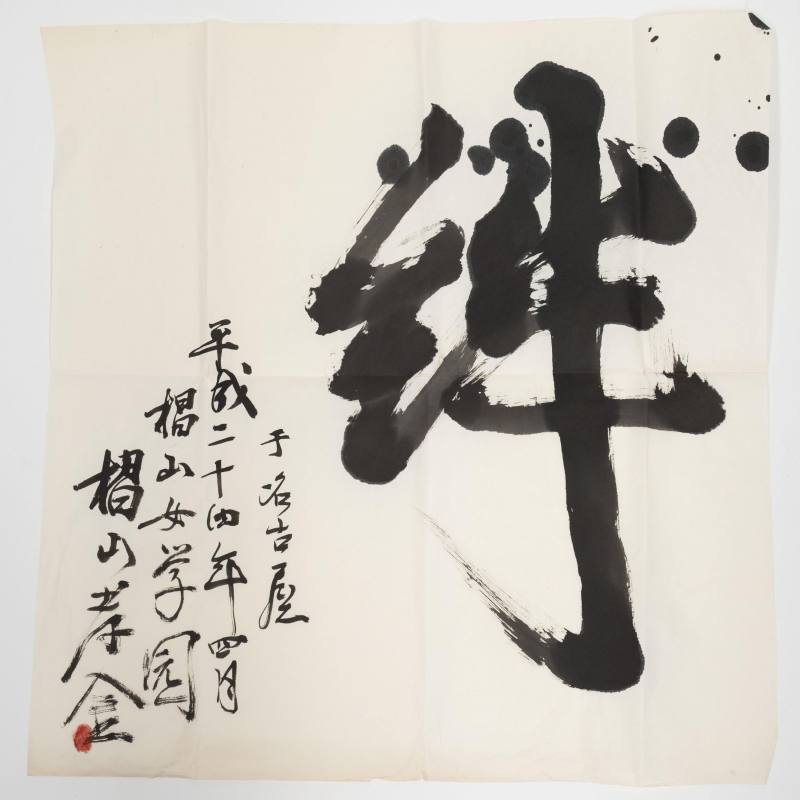 絆
于名古屋
平成二十四年四月
椙山女学園
椙山孝金